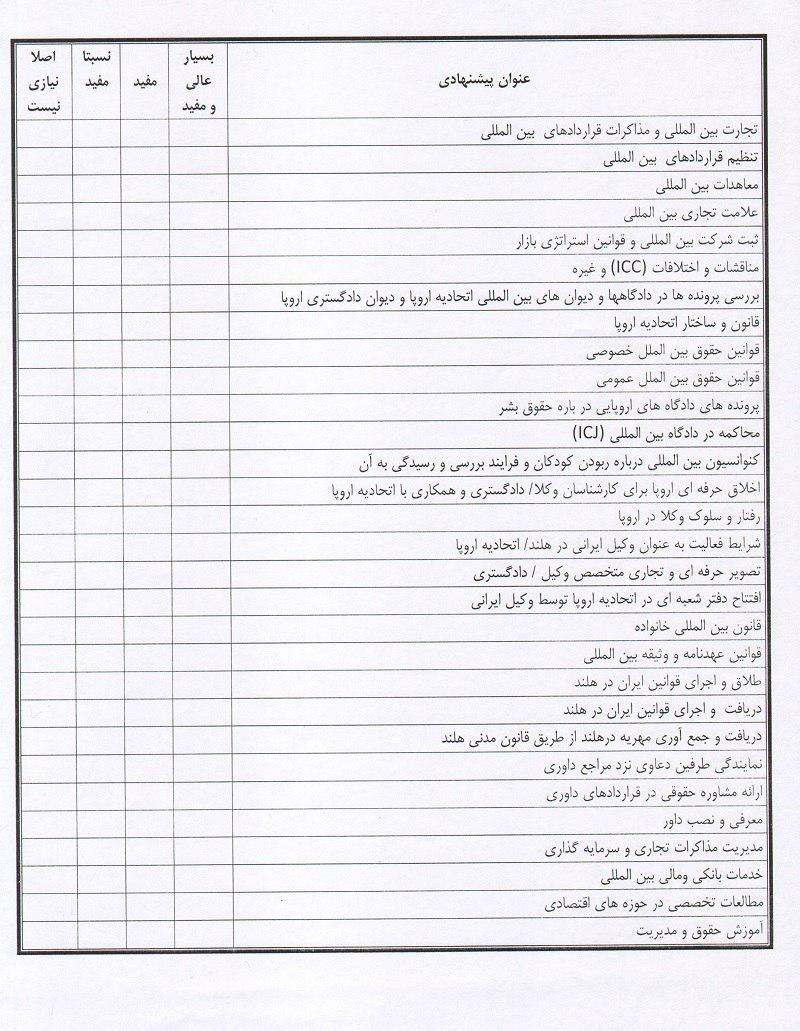 عنوان پیشنهادی
بسیار
عالی
و مفید
مفید
نسبتا
مفید
اصلا
نیازی
نیست
تجارت بین المللی و مذاکرات قراردادهای بین المللی
تنظیم قراردادهای بین المللی
معاهدات بین المللی
علامت تجاری بین المللی
ثبت شرکت بین المللی و قوانین استراتژی بازار
مناقشات و اختلافات (ICC) و غیره
بررسی پرونده ها در دادگاهها و دیوان های بین المللی اتحادیه اروپا و دیوان دادگستری اروپا
قانون و ساختار اتحادیه اروپا
قوانین حقوق بین الملل خصوصی
قوانین حقوق بین الملل عمومی
پرونده های دادگاه های اروپایی در باره حقوق بشر
محاکمه در دادگاه بین المللی (ICJ)
کنوانسیون بین المللی درباره ربودن کودکان و فرایند بررسی و رسیدگی به آن
اخلاق حرفه ای اروپا برای کارشناسان وکلا/ دادگستری و همکاری با اتحادیه اروپا
رفتار و سلوک وکلا در اروپا
شرایط فعالیت به عنوان وکیل ایرانی در هلند/ اتحادیه اروپا
تصویر حرفه ای و تجاری متخصص وکیل / دادگستری
افتتاح دفتر شعبه ای در اتحادیه اروپا توسط وکیل ایرانی
قانون بین المللی خانواده
قوانین عهدنامه و وثیقه بین المللی
طلاق و اجرای قوانین ایران در هلند
دریافت و اجرای قوانین ایران در هلند
دریافت و جمع آوری مهریه درهلند از طریق قانون مدنی هلند
نمایندگی طرفین دعاوی نزد مراجع داوری
ارائه مشاوره حقوقی در قراردادهای داوری
معرفی و نصب داور
مدیریت مذاکرات تجاری و سرمایه گذاری
خدمات بانکی ومالی بین المللی
مطالعات تخصصی در حوزه های اقتصادی
آموزش حقوق و مدیریت